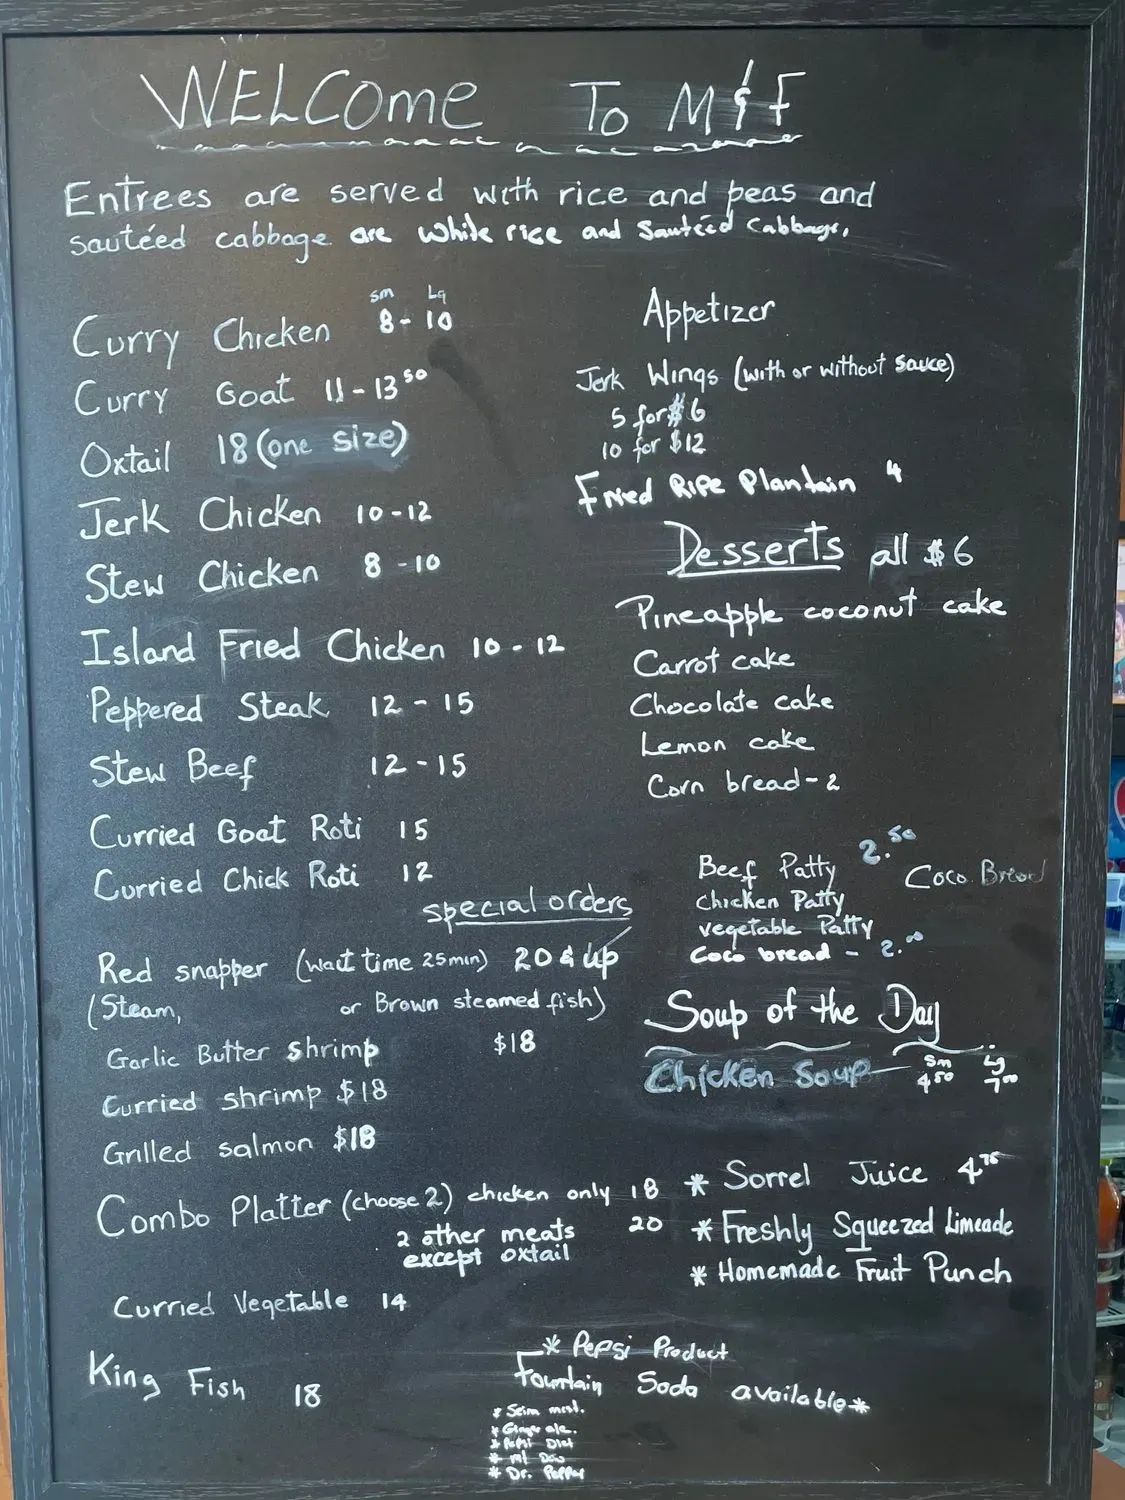 WELCome To M & F
Entrees are served with rice and peas and
sautéed cabbage are white rice and Sautéed Cabbage.
sm Lg
Curry Chicken 8 - 10
Curry Goat 11 - 13 50
Oxtail 18 (one size)
Jerk Chicken 10 - 12
Stew Chicken 8 - 10
Island Fried Chicken 10 - 12
Peppered Steak 12 - 15
Stew Beef 12 - 15
Curried Goat Roti 15
Curried Chick Roti 12
special orders
Red snapper (wait time 25min) 20 & up
(Steam, or Brown steamed fish)
Garlic Butter shrimp $18
Curried shrimp $18
Grilled salmon $18
Combo Platter (choose 2) chicken only 18
2 other meats 20
except oxtail
Curried Vegetable 14
King Fish 18
Appetizer
Jerk Wings (with or without sauce)
5 for $6
10 for $12
Fried Ripe Plantain 4
Desserts all $6
Pineapple coconut cake
Carrot cake
Chocolate cake
Lemon cake
Corn bread - 2
Beef Patty 2.50 Coco Bread
chicken Patty
vegetable Patty
Coco bread - 2.00
Soup of the Day
Chicken Soup
Sm Lg
4 50 7 00
* Sorrel Juice 4 75
* Freshly Squeezed Limeade
* Homemade Fruit Punch
* Pepsi Product
Fountain Soda available *
* Ginger ale.
* Pepsi Diet
* Dr. Pepper